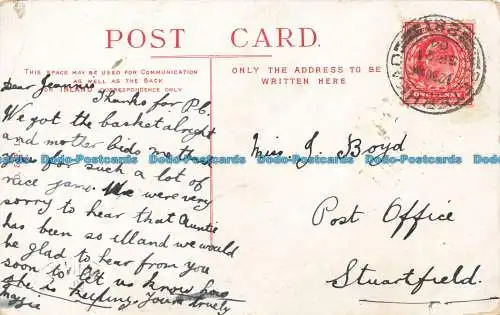 POST CARD.
THIS SPACE MAY BE USED FOR COMMUNICATION
AS WELL AS THE BACK
FOR INLAND CORRESPONDENCE ONLY
ONLY THE ADDRESS TO BE
WRITTEN HERE.
Dear
Thanks for P.C.
We got the basket alright
and mother bids me thank
you for such a lot of
nice jam. We were very
sorry to hear that Auntie
has been so ill and we would
be glad to hear from you
soon to let us know how
she is keeping. Yours truly
Maggie
Miss J. Boyd
Post Office
Stuartfield.
ONE PENNY
Dodo-Postcards Dodo-Postcards Dodo-Postcards Dodo-Postcards